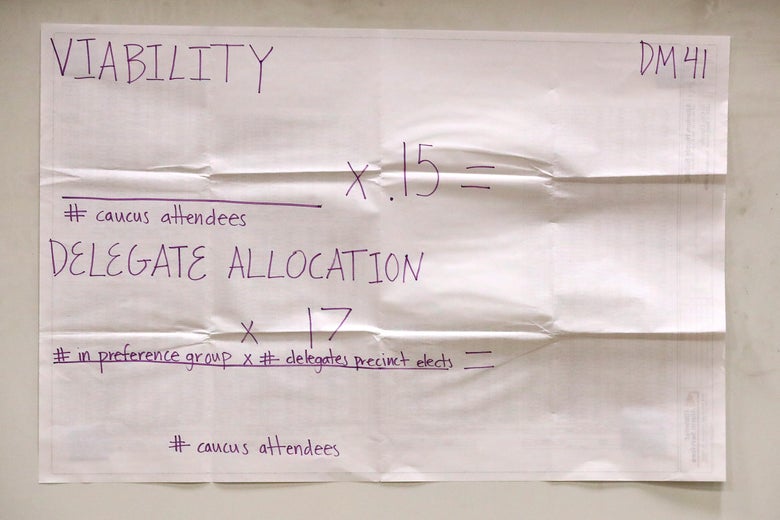 VIABILITY
DM 41
x .15 =
# caucus attendees
DELEGATE ALLOCATION
x 17
# in preference group x # delegates precinct elects =
# caucus attendees